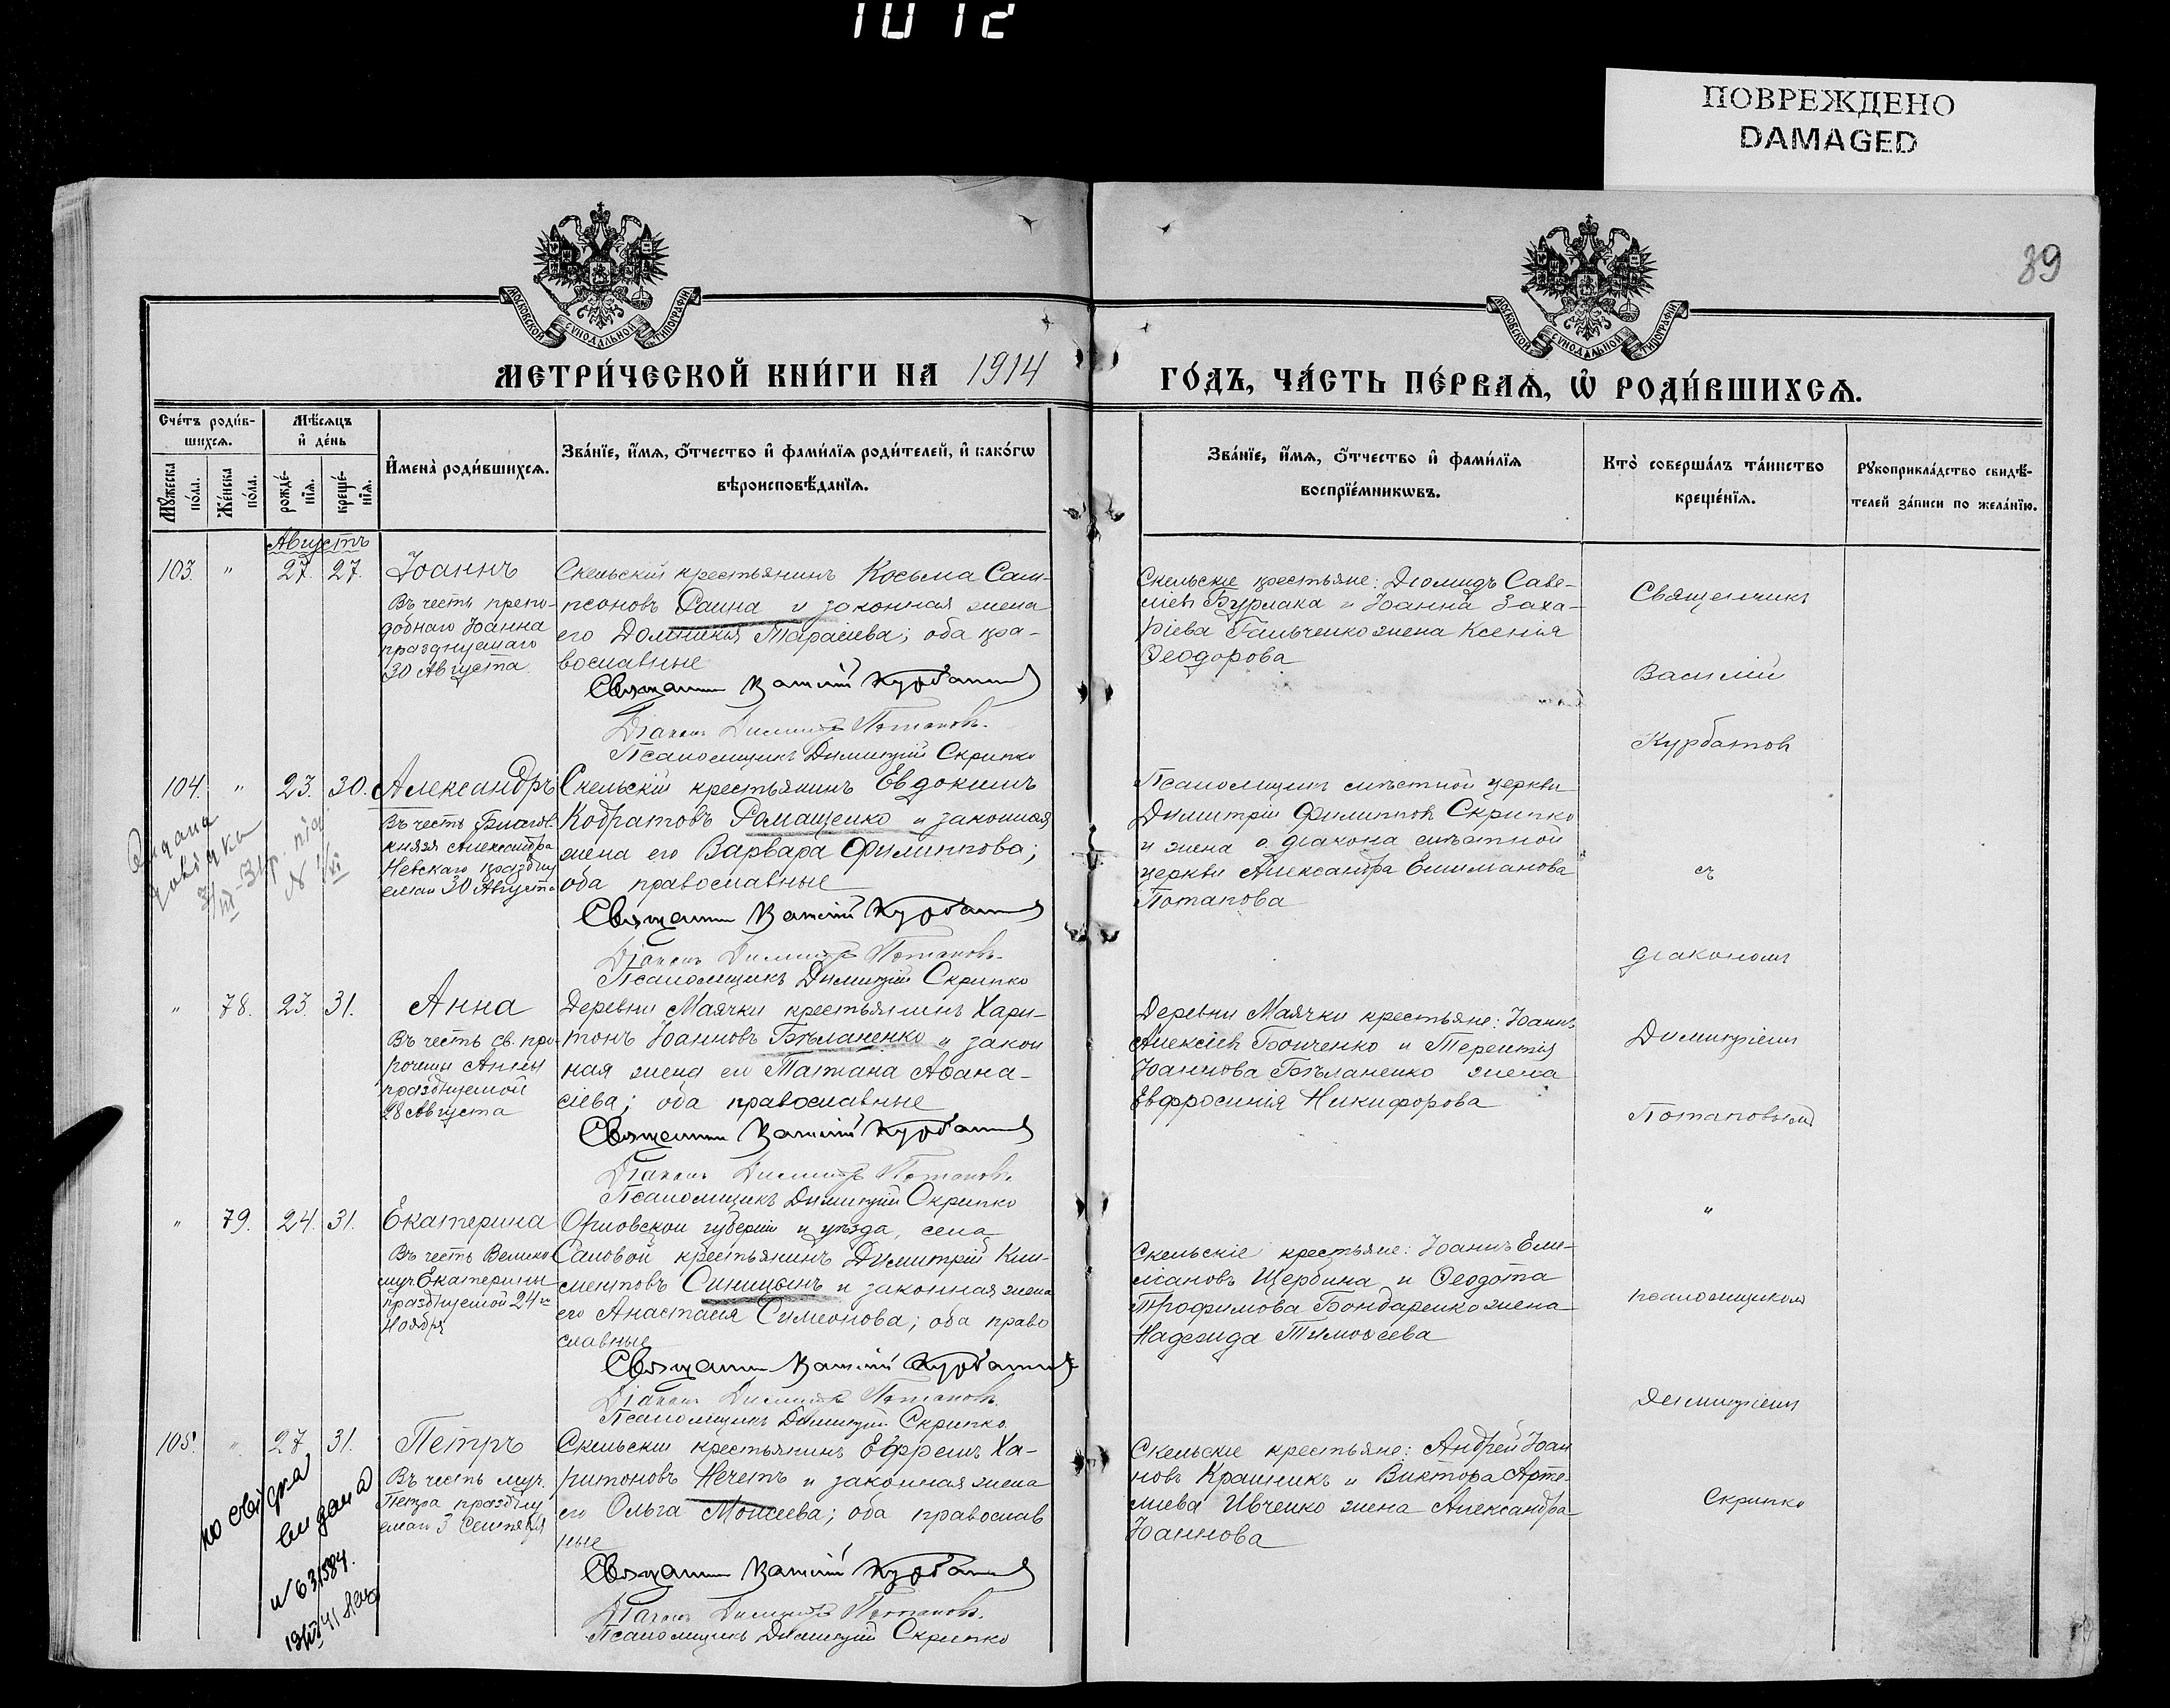 1012
ПОВРЕЖДЕНО
DAMAGED
МОСКОВСКОЙ СУНОДАЛЬНОЙ ТИПОГРАФИИ
МОСКОВСКОЙ СУНОДАЛЬНОЙ ТИПОГРАФИИ
89
МЕТРИ́ЧЕСКОЙ КНИ́ГИ НА 1914
ГО́ДЪ, ЧА́СТЬ ПЕ́РВАѦ, Ѡ҆ РОДИ́ВШИХСѦ.
Сче́тъ роди́в-
шихсѧ.
Мꙋ́жеска по́ла.
Же́нска по́ла.
Мѣ́сѧцъ
и҆ де́нь
рожде́-
нїѧ.
креще́-
нїѧ.
И҆мена̀ роди́вшихсѧ.
Зва́нїе, и҆́мѧ, ѻ҆́тчество и҆ фами́лїѧ роди́телей, и҆ како́гѡ
вѣроисповѣ́данїѧ.
Зва́нїе, и҆́мѧ, ѻ҆́тчество и҆ фами́лїѧ
воспрїе́мникѡвъ.
Кто̀ соверша́лъ та́инство
креще́нїѧ.
Рꙋкоприкла́дство свидѣ́-
телей за́писи по жела́нїю.
Августъ
103. " 27. 27. Іоаннъ
Въ честь препо-
добнаго Іоанна
празднуемаго
30 Августа
Скельскій крестьянинъ Косьма Сам-
псоновъ Раина и законная жена
его Домникія Тарасіева; оба пра-
вославные
Священникъ Василій Курбатовъ
Діаконъ Димитрій Потаповъ.
Псаломщикъ Димитрій Скрипко
Скельскіе крестьяне: Діомидъ Саве-
ліевъ Бурлака и Іоанна Заха-
ріева Гальченко жена Ксенія
Ѳеодорова
Священникъ
Василій
Курбатовъ
104. " 23. 30. Александръ
Въ честь Благов.
князя Александра
Невскаго праздну
емаго 30 Августа
Скельскій крестьянинъ Евдокимъ
Кодратовъ Ромащенко и законная
жена его Варвара Филиппова;
оба православные
Священникъ Василій Курбатовъ
Діаконъ Димитрій Потаповъ.
Псаломщикъ Димитрій Скрипко
Псаломщикъ мѣстной церкви
Димитрій Филипповъ Скрипко
и жена о. діакона мѣстной
церкви Александра Емиліанова
Потапова
съ
діакономъ
" 78. 23. 31. Анна
Въ честь св. про-
рочицы Анны
празднуемой
28 Августа
Деревни Маячки крестьянинъ Хари-
тонъ Іоанновъ Бѣланенко и закон
ная жена его Татіана Аѳана-
сіева; оба православные
Священникъ Василій Курбатовъ
Діаконъ Димитрій Потаповъ.
Псаломщикъ Димитрій Скрипко
Деревни Маячки крестьяне: Іоаннъ
Алексіевъ Бойченко и Терентія
Іоаннова Бѣланенко жена
Евфросинія Никифорова
Димитріемъ
Потаповымъ
" 79. 24. 31. Екатерина
Въ честь Велико
муч. Екатерины
празднуемой 24го
Ноября
Орловской губерніи и уѣзда, села
Саловой крестьянинъ Димитрій Кли-
ментовъ Синицынъ и законная жена
его Анастасія Симеонова; оба право
славные
Священникъ Василій Курбатовъ
Діаконъ Димитрій Потаповъ.
Псаломщикъ Димитрій Скрипко
Скельскіе крестьяне: Іоаннъ Еми-
ліановъ Щербина и Ѳеодота
Трофимова Бондаренко жена
Надежда Тимоѳеева
"
псаломщикомъ
Димитріемъ
105. " 27 31. Петръ
Въ честь муч.
Петра праздну
емаго 3 Сентября
Скельскій крестьянинъ Ефремъ Ха-
ритоновъ Нечетъ и законная жена
его Ольга Моисеева; оба православ
ные
Священникъ Василій Курбатовъ
Діаконъ Димитрій Потаповъ.
Псаломщикъ Димитрій Скрипко
Скельскіе крестьяне: Андрей Іоан
новъ Крашникъ и Виктора Арте-
миева Ивченко жена Александра
Іоаннова
Скрипко
видана